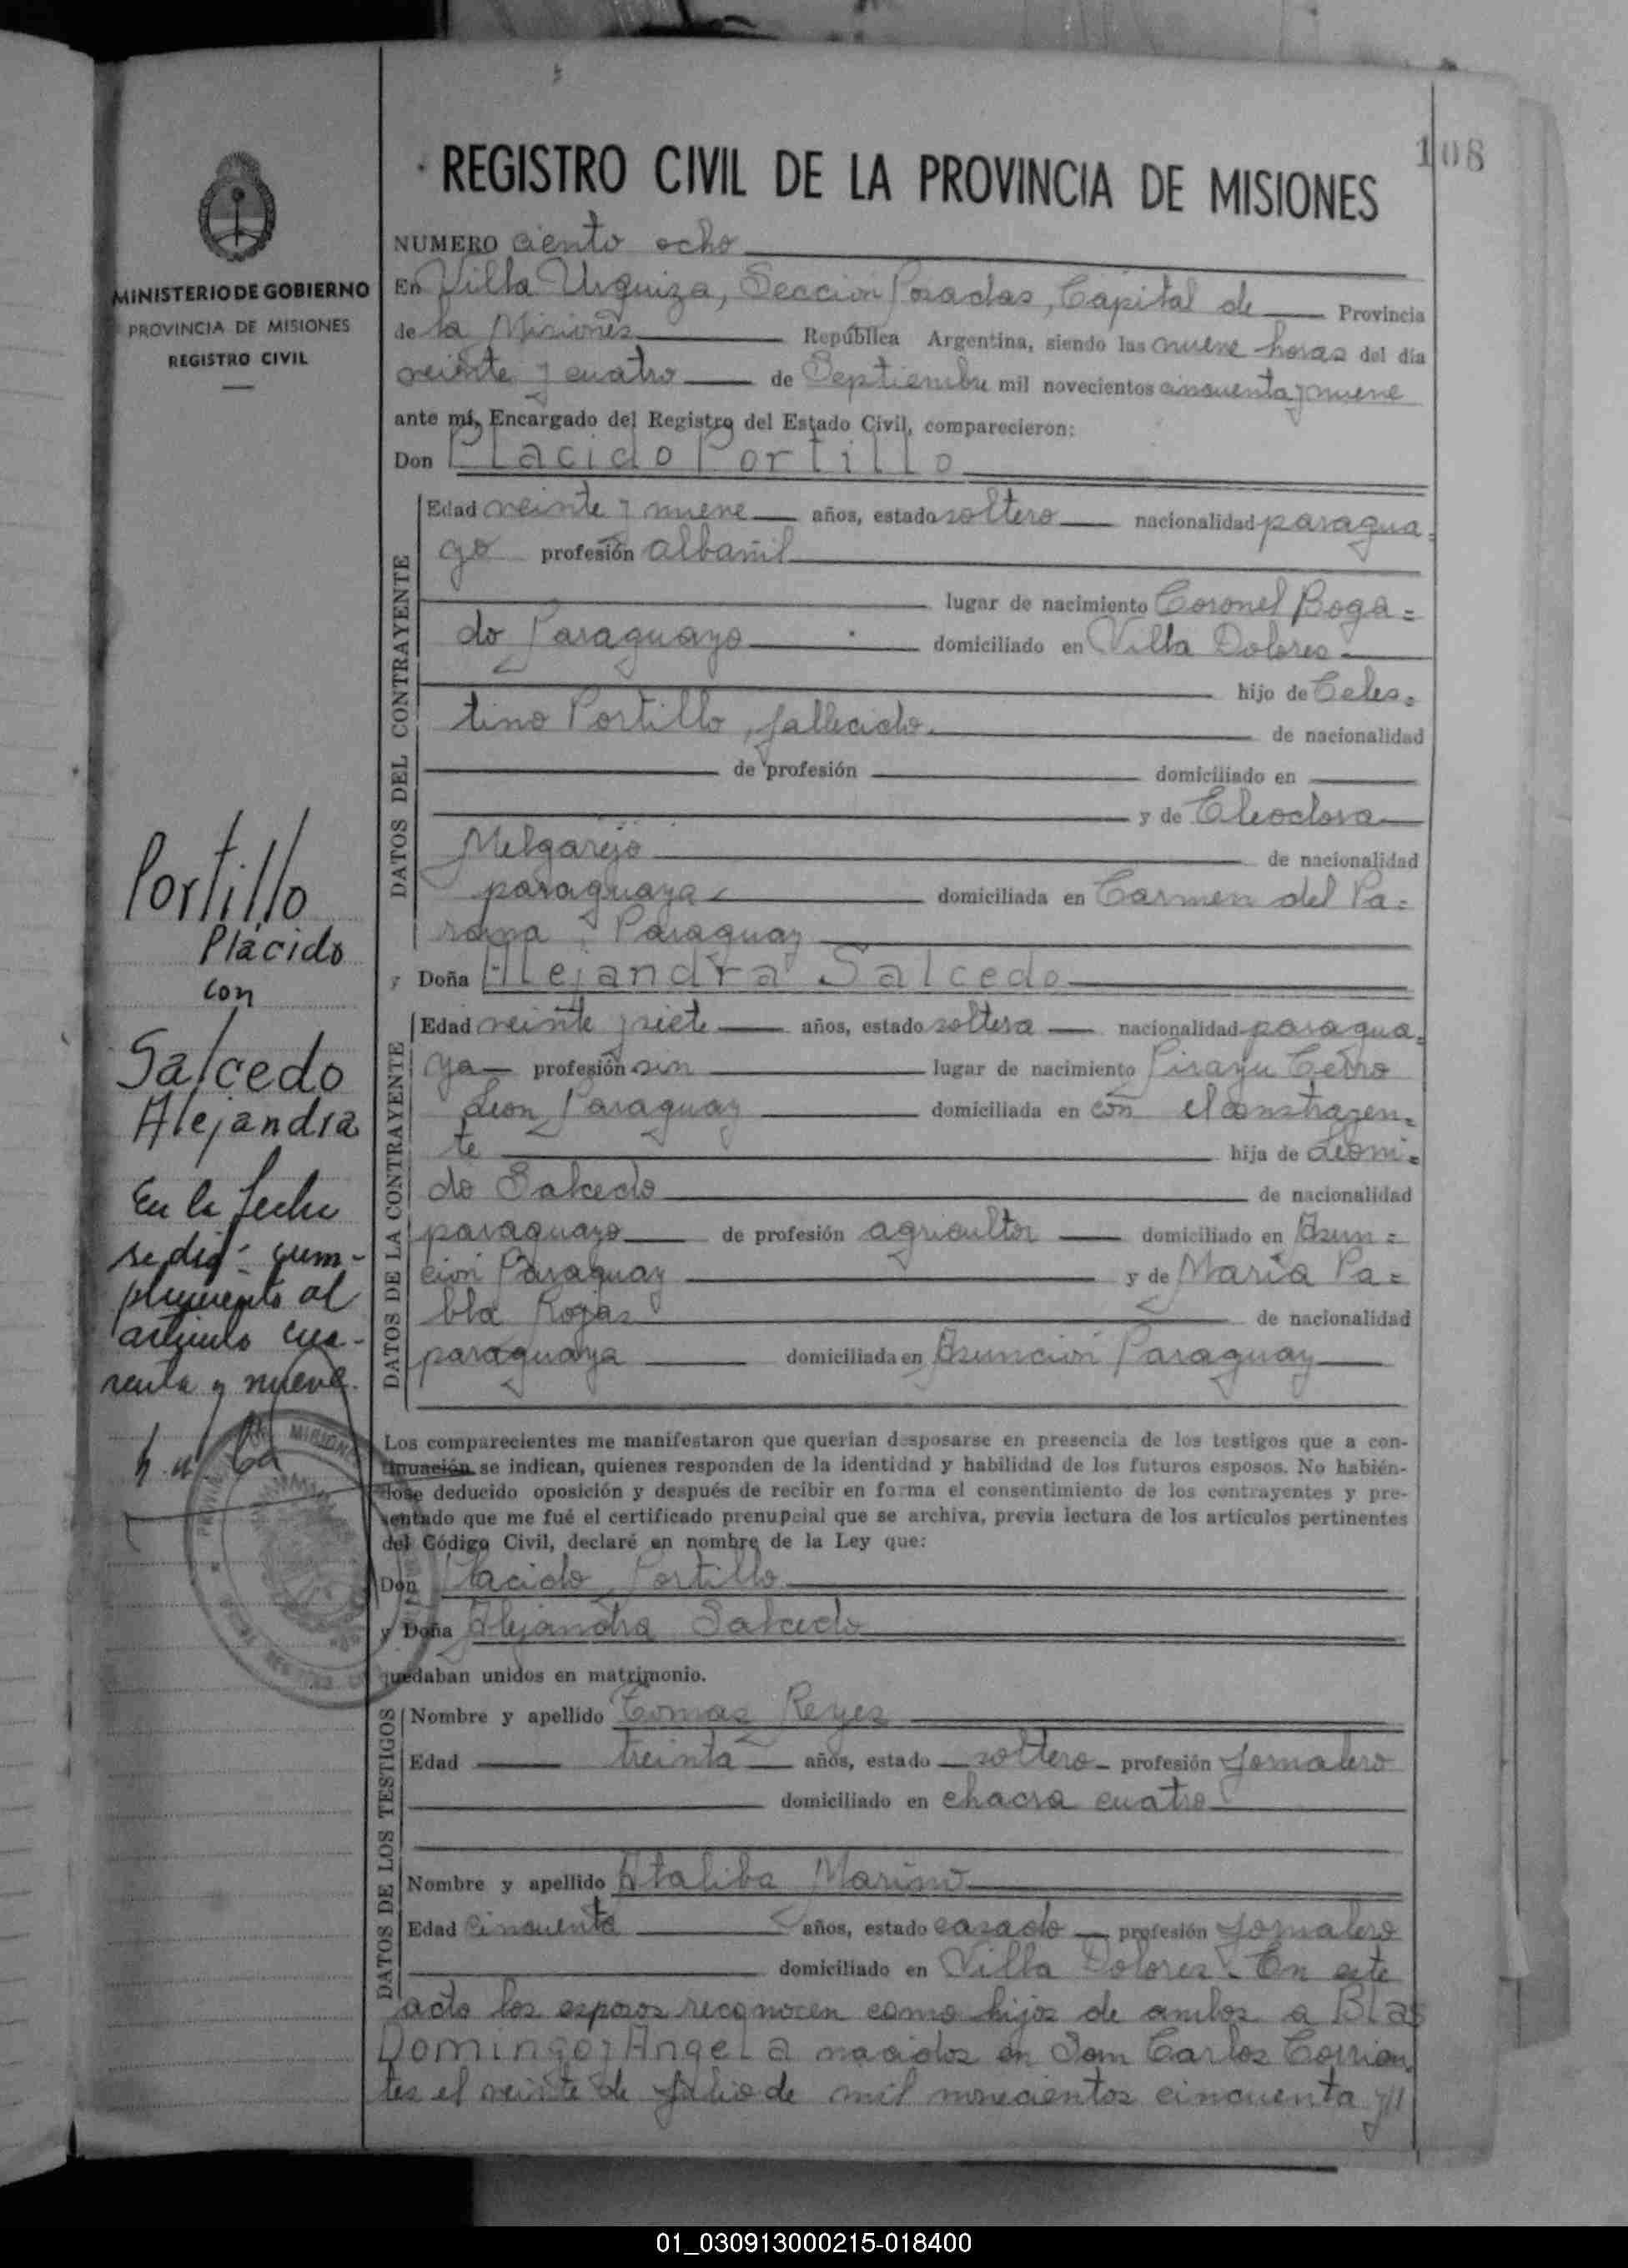 108
REGISTRO CIVIL DE LA PROVINCIA DE MISIONES
MINISTERIO DE GOBIERNO
PROVINCIA DE MISIONES
REGISTRO CIVIL
NUMERO ciento ocho
En Villa Urquiza, Sección Posadas, Capital de Provincia
de la Misiones República Argentina, siendo las nueve horas del día
veinte y cuatro de Septiembre mil novecientos cincuenta y nueve
ante mí, Encargado del Registro del Estado Civil, comparecieron:
Don Placido Portillo
DATOS DEL CONTRAYENTE
Edad veinte y nueve años, estado soltero nacionalidad paragua=
yo profesión albañil
lugar de nacimiento Coronel Boga=
do Paraguayo domiciliado en Villa Dolores
hijo de Celes=
tino Portillo, fallecido. de nacionalidad
de profesión domiciliado en
y de Eleodora
Melgarejo de nacionalidad
paraguaya domiciliada en Carmen del Pa=
rana, Paraguay
y Doña Alejandra Salcedo
DATOS DE LA CONTRAYENTE
Edad veinte y siete años, estado soltera nacionalidad paragua=
ya profesión sin lugar de nacimiento Pirayu Cerro
Leon Paraguay domiciliada en con el contrayen=
te hija de Leoni=
do Salcedo de nacionalidad
paraguayo de profesión agricultor domiciliado en Asun=
ción Paraguay y de María Pa=
bla Rojas de nacionalidad
paraguaya domiciliada en Asunción Paraguay
Los comparecientes me manifestaron que querían desposarse en presencia de los testigos que a con-
tinuación se indican, quienes responden de la identidad y habilidad de los futuros esposos. No habién-
dose deducido oposición y después de recibir en forma el consentimiento de los contrayentes y pre-
sentado que me fué el certificado prenupcial que se archiva, previa lectura de los artículos pertinentes
del Código Civil, declaré en nombre de la Ley que:
Don Placido Portillo
y Doña Alejandra Salcedo
quedaban unidos en matrimonio.
DATOS DE LOS TESTIGOS
Nombre y apellido Tomas Reyes
Edad treinta años, estado soltero profesión Jornalero
domiciliado en chacra cuatro
Nombre y apellido Ataliba Marino
Edad cincuenta años, estado casado profesión Jornalero
domiciliado en Villa Dolores. En este
acto los esposos reconocen como hijos de ambos a Blas
Domingo y Angela nacidos en Dom Carlos Corrien
tes el veinte de Julio de mil novecientos cincuenta y
Portillo
Plácido
con
Salcedo
Alejandra
En la fecha
se dió cum-
plimiento al
artículo cua-
renta y nueve.
MISIONES
01_030913000215-018400